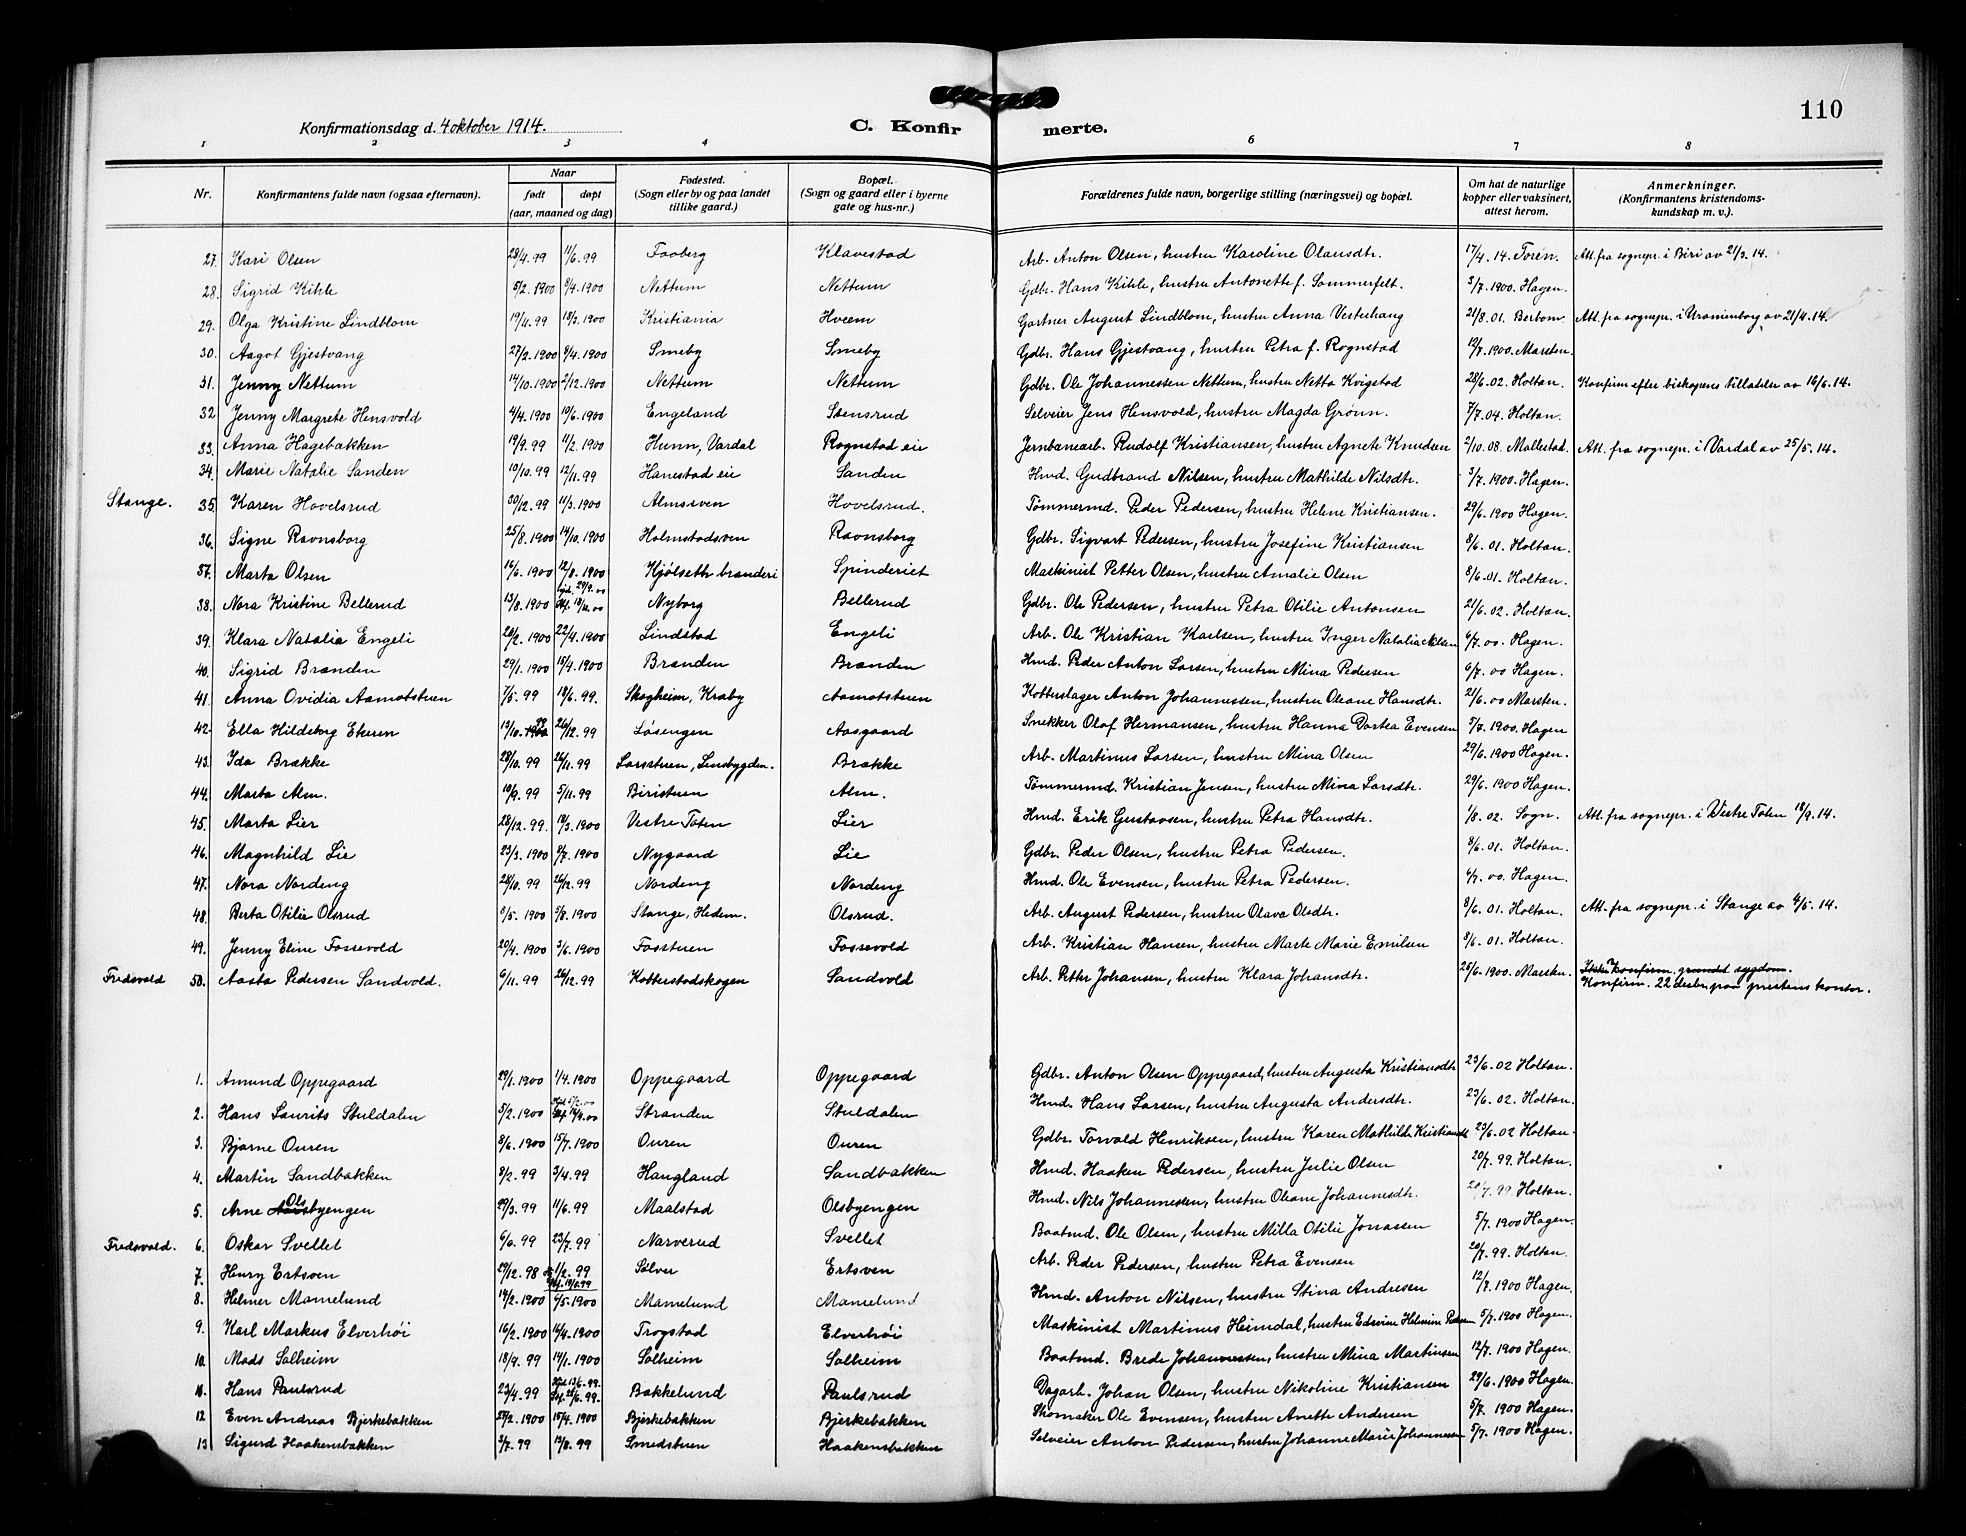 110
Konfirmationsdag d. 4 oktober 1914.
C. Konfirmerte.
1 2 3 4 6 7 8
Nr. | Konfirmantens fulde navn (ogsaa efternavn). | Naar født | døpt (aar, maaned og dag) | Fødested. (Sogn eller by og paa landet tillike gaard.) | Bopæl. (Sogn og gaard eller i byerne gate og hus-nr.) | Forældrenes fulde navn, borgerlige stilling (næringsvei) og bopæl. | Om hat de naturlige kopper eller vaksinert, attest herom. | Anmerkninger. (Konfirmantens kristendomskundskap m. v.)
27. Kari Olsen 28/4. 99 11/6. 99 Faaberg Klavestad Arb. Anton Olsen, hustru Karoline Olausdtr. 17/4. 14. Toren. Att. fra sognepr. i Biri av 21/3. 14.
28. Sigrid Kihle 5/2. 1900 8/4. 1900 Nettum Nettum Gdbr. Hans Kihle, hustru Antonette f. Sommerfelt. 3/7. 1900. Hagen.
29. Olga Kristine Lindblom 19/4. 99 18/3. 1900 Kristiania Hveem Gartner August Lindblom, hustru Anna Vesterhang 21/8. 01. Berbom. Att. fra sognepr. i Uranienborg av 21/4. 14.
30. Aagot Gjestvang 27/2. 1900 8/4. 1900 Smeby Smeby Gdbr. Hans Gjestvang, hustru Petra f. Rognstad 12/7. 1900. Marsten.
31. Jenny Nettum 14/10. 1900 2/12. 1900 Nettum Nettum Gdbr. Ole Johannessen Nettum, hustru Netta Kvigstad 28/6. 02. Holtan. Konfirm efter biskopens tillatelse av 16/6. 14.
32 Jenny Margrete Hensvold 4/4. 1900 10/6. 1900 Engeland Stensrud Selveier Jens Hensvold, hustru Magda Grønn. 7/7. 04. Holtan.
33. Anna Hagebakken 19/9. 99 11/2. 1900 Hunn, Vardal Rognstad eie Jernbanearb. Rudolf Kristiansen, hustru Agnete Knudsen 2/10. 08. Mallestad. Att. fra sognepr. i Vardal av 25/5. 14.
34. Marie Natalie Sanden 10/10. 99 12/11. 99 Hanestad eie Sanden Hmd. Gudbrand Nilsen, hustru Mathilde Nilsdtr. 3/7. 1900. Hagen.
Stange. 35. Karen Hovelsrud 30/12. 99 11/3. 1900 Almseven Hovelsrud. Tømmermd. Peder Pedersen, hustru Helene Kristiansen. 29/6. 1900 Hagen.
36. Signe Ravnsborg 25/8. 1900 14/10. 1900 Holmstadsven Ravnsborg Gdbr. Sigvart Pedersen, hustru Josefine Kristiansen 8/6. 01. Holtan.
37. Marta Olsen 16/6. 1900 12/8. 1900 Kjølseth brænderi Spinderiet Maskinist Petter Olsen, hustru Amalie Olsen 8/6. 01. Holtan.
38. Nora Kristine Bellerud 13/8. 1900 Nyborg Bellerud Gdbr. Ole Pedersen, hustru Petra Otilie Antonsen 21/6. 02. Holtan.
39. Klara Natalia Engeli 28/2. 1900 22/4. 1900 Lindstad Engeli Arb. Ole Kristian Karlsen, hustru Inger Natalia Nilsen 6/7. 00. Hagen.
40. Sigrid Brænden 29/1. 1900 15/4. 1900 Brænden Brænden Hmd. Peder Anton Larsen, hustru Mina Pedersen 6/7. 00 Hagen.
41. Anna Ovidia Aamotstuen 7/5. 99 18/6. 99. Skogheim, Kraby Aamotstuen Kobberslager Anton Johannessen, hustru Oleane Hansdtr. 21/6. 00 Marsten.
42. Ella Hildeborg Ekeren 19/10. 99 26/12. 99 Løsengen Aasgaard Snekker Olaf Hermansen, hustru Hanna Dortea Evensen 5/7. 1900. Hagen
43. Ida Brække 28/10. 99 26/11. 99 Larsstuen, Lensbygden. Brække Arb. Martinus Larsen, hustru Mina Olsen 29/6. 1900 Hagen.
44. Marta Alm. 10/9. 99 5/11. 99 Biristuen Alm. Tømmermd. Kristian Jensen, hustru Mina Larsdtr. 29/6. 1900 Hagen.
45. Marta Lier 28/12. 99. 18/3. 1900 Vestre Toten Lier Hmd. Erik Gustavsen, hustru Petra Hansdtr. 1/8. 02. Sogn. Att. fra sognepr. i Vestre Toten 18/9. 14.
46. Magnhild Lie 23/3. 1900 8/7. 1900 Nygaard Lie Gdbr. Peder Olsen, hustru Petra Pedersen. 8/6. 01. Holtan.
47. Nora Nordeng 28/10. 99 26/12. 99 Nordeng Nordeng Hmd. Ole Evensen, hustru Petra Pedersen. 6/7. 00. Hagen.
48. Berta Otilie Olsrud 8/5. 1900 5/8. 1900 Stange, Hedem. Olsrud. Arb. August Pedersen, hustru Olava Olsdtr. 8/6. 01. Holtan. Att. fra sognepr. i Stange av 4/5. 14.
49. Jenny Eline Fossevold 20/4. 1900 3/6. 1900 Fosstuen Fossevold Arb. Kristian Hansen, hustru Marte Marie Emilsen 8/6. 01. Holtan.
Fredsvold 50. Aasta Pedersen Sandvold. 6/11. 99 26/12. 99 Kobberstadskogen Sandvold Arb. Petter Johansen, hustru Klara Johansdtr. 25/6. 1900. Marsten. Ikke konfirm. grundet sygdom.
Konfirm. 22 desbr. paa prestens kontor.
1. Amund Oppegaard 29/1. 1900 1/4. 1900 Oppegaard Oppegaard Gdbr. Anton Olsen Oppegaard, hustru Augusta Kristiansdtr 23/6. 02 Holtan.
2. Hans Laurits Stuldalen 5/2. 1900 Stranden Stuldalen Hmd. Hans Larsen, hustru Augusta Andersdtr. 23/6. 02. Holtan.
3. Bjarne Ouren 8/6. 1900 15/7. 1900 Ouren Ouren Gdbr. Torvald Henriksen, hustru Karen Mathilde Kristiansdt 23/6. 02 Holtan.
4. Martin Sandbakken 8/2. 99 3/4. 99 Haugland Sandbakken Hmd. Haaken Pedersen, hustru Julie Olsen 20/7. 99. Holtan.
5. Arne Olsbyengen 29/3. 99 11/6. 99 Maalstad Olsbyengen Hmd. Nils Johannessen, hustru Oleane Johannesdtr. 20/7. 99 Holtan.
Fredsvold. 6. Oskar Svellet 6/6. 99 23/7. 99 Narverud Svellet Baatmd. Ole Olsen, hustru Milla Otilie Jonassen 5/7. 1900 Hagen.
7. Henry Ertsven 29/12. 98 1/2. 99 Sølver Ertsven Arb. Peder Pedersen, hustru Petra Evensen 20/7. 99. Holtan.
8. Helmer Mamelund 14/2. 1900 6/5. 1900 Mamelund Mamelund Hmd. Anton Nilsen, hustru Stina Andresen 12/7. 1900 Hagen.
9. Karl Markus Elverhöi 16/2. 1900 16/4. 1900 Trogstad Elverhöi Maskinist Martinus Heimdal, hustru Edevine Helmine Pedersen 5/7. 1900 Hagen.
10. Mads Solheim 18/9. 99 14/1. 1900 Solheim Solheim Baatmd. Brede Johannessen, hustru Mina Martinsen 12/7. 1900 Hagen.
11. Hans Paulsrud 23/4. 99 Bakkelund Paulsrud Dagarb. Johan Olsen, hustru Nikoline Kristiansen 29/6. 1900 Hagen.
12 Even Andreas Bjerkebakken 27/2. 1900 15/4. 1900 Bjerkebakken Bjerkebakken Skomaker Ole Evensen, hustru Anette Andersen 5/7. 1900 Hagen.
13 Sigurd Haakensbakken 3/7. 99 13/8. 99 Smedstuen Haakensbakken Selveier Anton Pedersen, hustru Johanne Marie Johannessen 5/7. 1900 Hagen.